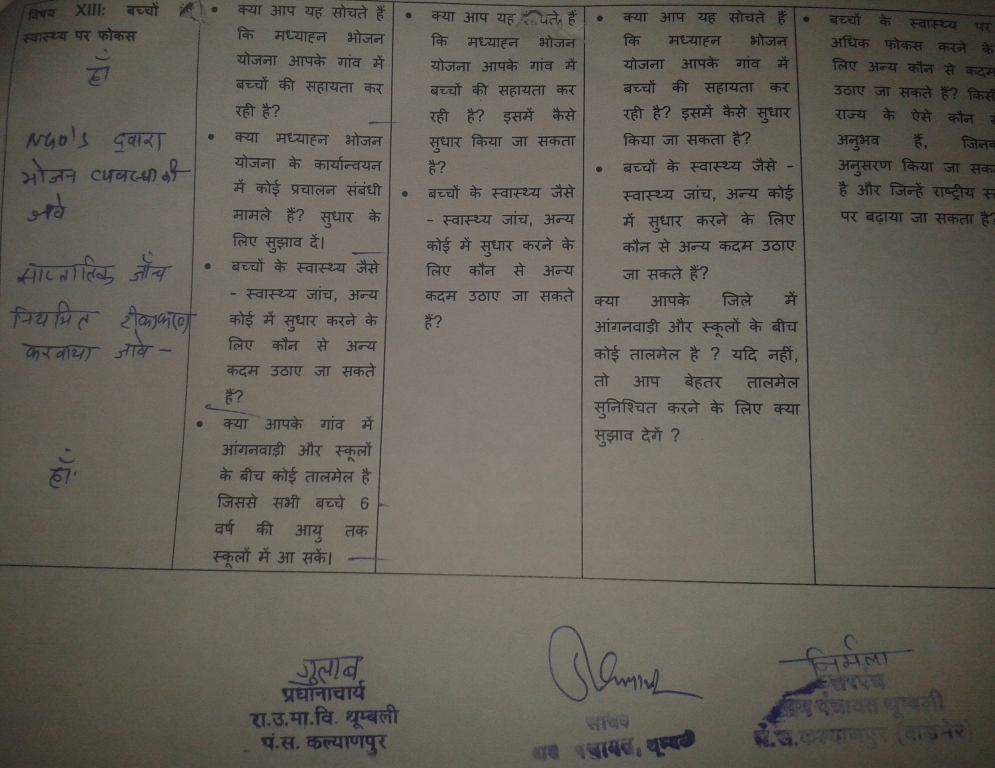 विषय XIII: बच्चों
स्वास्थ्य पर फोकस
हाँ
NGO'S द्वारा
भोजन व्यवस्था की
जावे
साप्ताहिक जाँच
नियमित
करवाया जावे -
हाँ.
• क्या आप यह सोचते हैं
कि मध्याह्न भोजन
योजना आपके गांव में
बच्चों की सहायता कर
रही है?
• क्या मध्याह्न भोजन
योजना के कार्यान्वयन
में कोई प्रचालन संबंधी
मामले हैं? सुधार के
लिए सुझाव दें।
• बच्चों के स्वास्थ्य जैसे
- स्वास्थ्य जांच, अन्य
कोई में सुधार करने के
लिए कौन से अन्य
कदम उठाए जा सकते
हैं?
• क्या आपके गांव में
आंगनवाड़ी और स्कूलों
के बीच कोई तालमेल है
जिससे सभी बच्चे 6
वर्ष की आयु तक
स्कूलों में आ सकें।
• क्या आप यह सोचते हैं
कि मध्याह्न भोजन
योजना आपके गांव में
बच्चों की सहायता कर
रही है? इसमें कैसे
सुधार किया जा सकता
है?
• बच्चों के स्वास्थ्य जैसे
- स्वास्थ्य जांच, अन्य
कोई में सुधार करने के
लिए कौन से अन्य
कदम उठाए जा सकते
हैं?
• क्या आप यह सोचते हैं
कि मध्याह्न भोजन
योजना आपके गांव में
बच्चों की सहायता कर
रही है? इसमें कैसे सुधार
किया जा सकता है?
• बच्चों के स्वास्थ्य जैसे -
स्वास्थ्य जांच, अन्य कोई
में सुधार करने के लिए
कौन से अन्य कदम उठाए
जा सकते हैं?
क्या आपके जिले में
आंगनवाड़ी और स्कूलों के बीच
कोई तालमेल है ? यदि नहीं,
तो आप बेहतर तालमेल
सुनिश्चित करने के लिए क्या
सुझाव देगें ?
• बच्चों के स्वास्थ्य पर
अधिक फोकस करने के
लिए अन्य कौन से कदम
उठाए जा सकते हैं?
राज्य के ऐसे कौन
अनुभव हैं,
अनुसरण किया जा
है और जिन्हें राष्ट्रीय
पर बढ़ाया जा सकता है?
गुलाब
प्रधानाचार्य
रा.उ.मा.वि. थूम्बली
पं.स. कल्याणपुर
सचिव
ग्राम पंचायत, थूम्बली
निर्मला
सरपंच
ग्राम पंचायत थूम्बली
पं.स. कल्याणपुर (बाड़मेर)